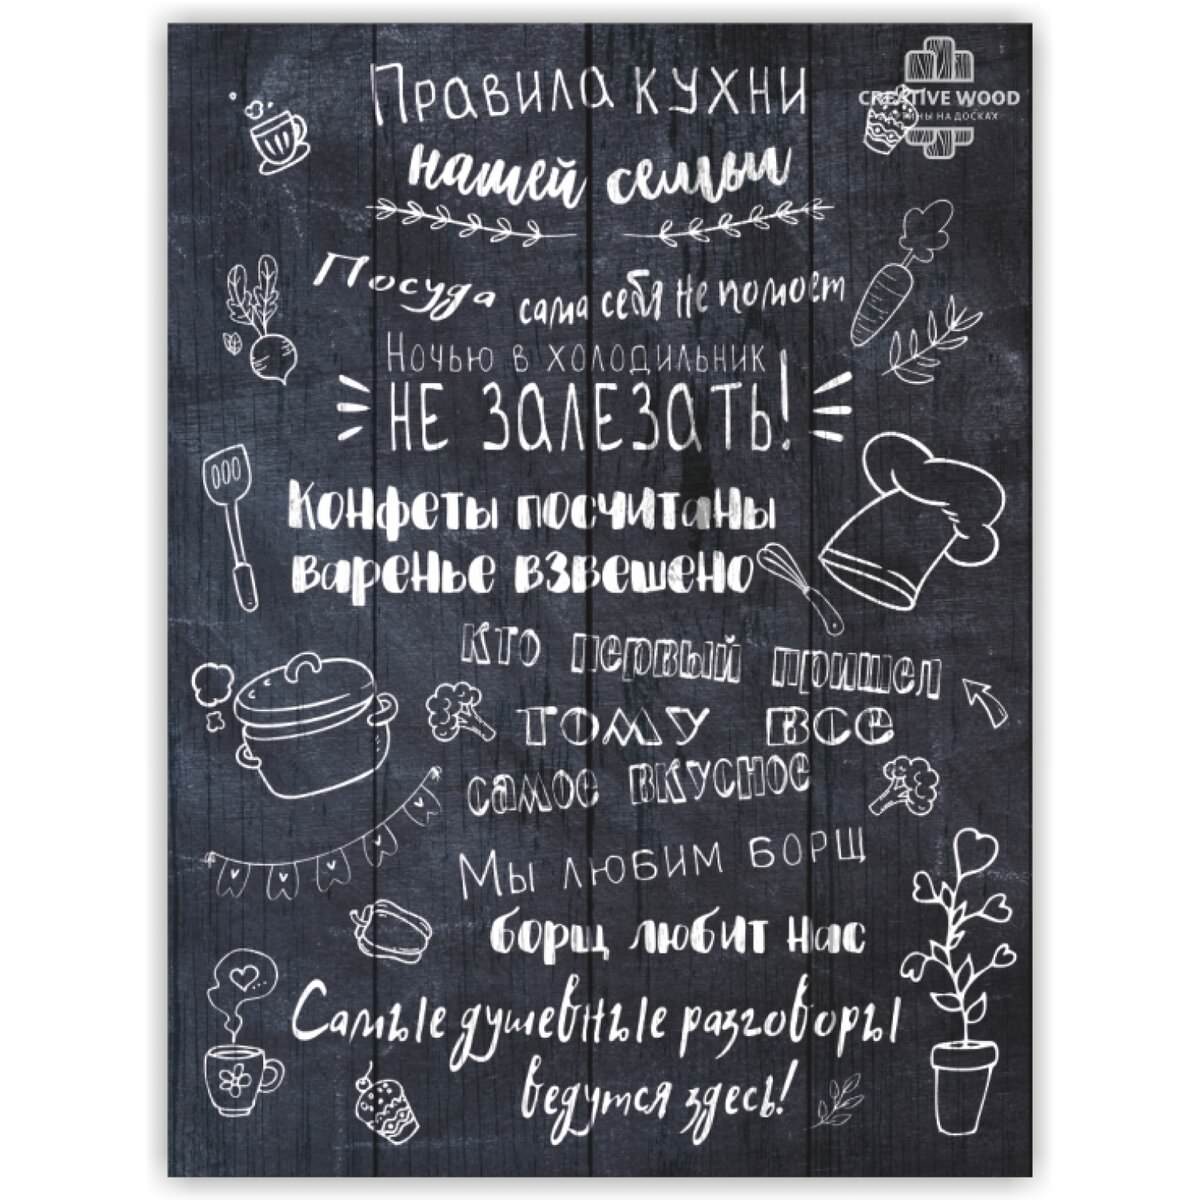 Правила кухни
CREATIVE WOOD
КАРТИНЫ НА ДОСКАХ
нашей семьи
Посуда сама себя не помоет
Ночью в холодильник
НЕ ЗАЛЕЗАТЬ!
Конфеты посчитаны
варенье взвешено
кто первый пришел
тому все
самое вкусное
Мы любим борщ
борщ любит нас
Самые душевные разговоры
ведутся здесь!